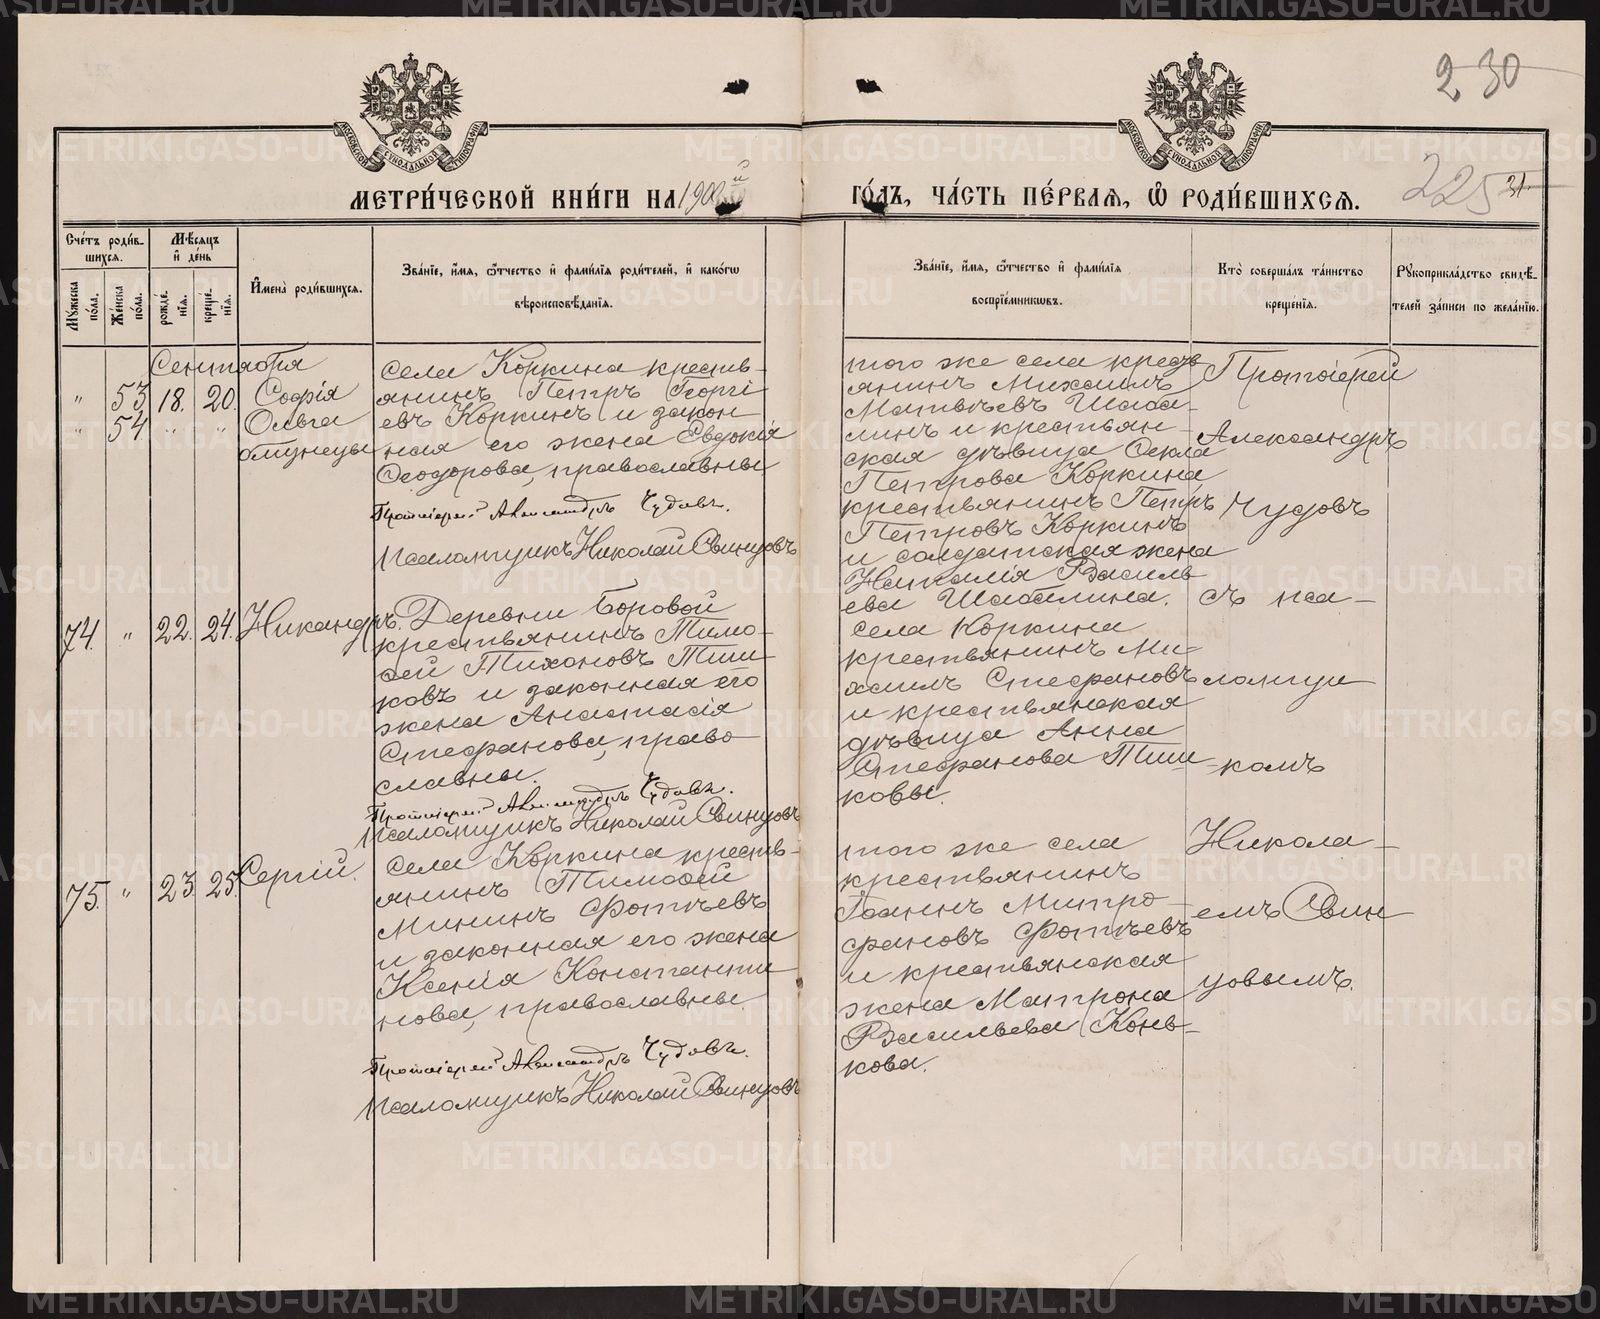 230
225
31.
МОСКОВСКОЙ СѴНОДАЛЬНОЙ ТИПОГРАФІИ
МОСКОВСКОЙ СѴНОДАЛЬНОЙ ТИПОГРАФІИ
МЕТРИ́ЧЕСКОЙ КНИ́ГИ НА 1900 й
ГО́ДЪ, ЧА́СТЬ ПЕ́РВАЯ, Ѽ РОДИ́ВШИХСЯ.
Сче́тъ роди́в-
шихся.
Му́жеска по́ла.
Же́нска по́ла.
Мѣ́сяцъ и҆ де́нь
рожде́-нїя.
креще́-нїя.
И҆мена̀ роди́вшихся.
Зва́нїе, и҆́мя, ѻ҆́тчество и҆ фами́лїя роди́телей, и҆ како́гѡ
вѣроисповѣ́данїя.
Зва́нїе, и҆́мя, ѻ҆́тчество и҆ фами́лїя
воспрїе́мникѡвъ.
Кто̀ соверша́лъ та́инство
креще́нїя.
Рꙋкоприкла́дство свидѣ́-
телей за́писи по жела́нїю.
Сентября
" 53 18. 20. Софія
" 54 " " Ольга
близнецы
села Коркина кресть-
янинъ Петръ Георгі
евъ Коркинъ и закон
ная его жена Евдокія
Ѳеодорова, православны
Протоіерей Александръ Чудовъ.
Псаломщикъ Николай Свинцовъ
того же села кресть
янинъ Михаилъ
Матвѣевъ Шаба-
линъ и крестьян-
ская дѣвица Ѳекла
Петрова Коркина
крестьянинъ Петръ
Петровъ Коркинъ
и солдатская жена
Наталія Василь
ева Шабалина.
74. " 22. 24. Никандръ.
Деревни Боровой
крестьянинъ Тимо-
ѳей Тихоновъ Тиш-
ковъ и законная его
жена Анастасія
Стефанова, право-
славны.
Протоіерей Александръ Чудовъ.
Псаломщикъ Николай Свинцовъ
села Коркина
крестьянинъ Ми-
хаилъ Стефановъ
и крестьянская
дѣвица Анна
Стефанова Тиш-
ковы.
75. " 23. 25. Сергій.
Села Коркина кресть-
янинъ Тимоѳей
Мининъ Фотѣевъ
и законная его жена
Ксенія Константи
нова, православны
Протоіерей Александръ Чудовъ.
Псаломщикъ Николай Свинцовъ
того же села
крестьянинъ
Іоаннъ Митро-
фановъ Фотѣевъ
и крестьянская
жена Матрона
Васильева Конь-
кова.
Протоіерей
Александръ
Чудовъ
съ пса-
ломщи
комъ
Никола-
емъ Свин
цовымъ.
METRIKI.GASO-URAL.RU